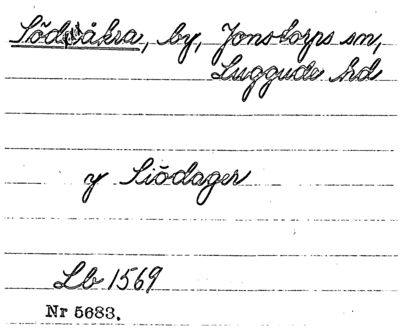 Södåkra, by, Jonstorps sn,
Luggude hd
y Siödager
Lb 1569
Nr 5683.